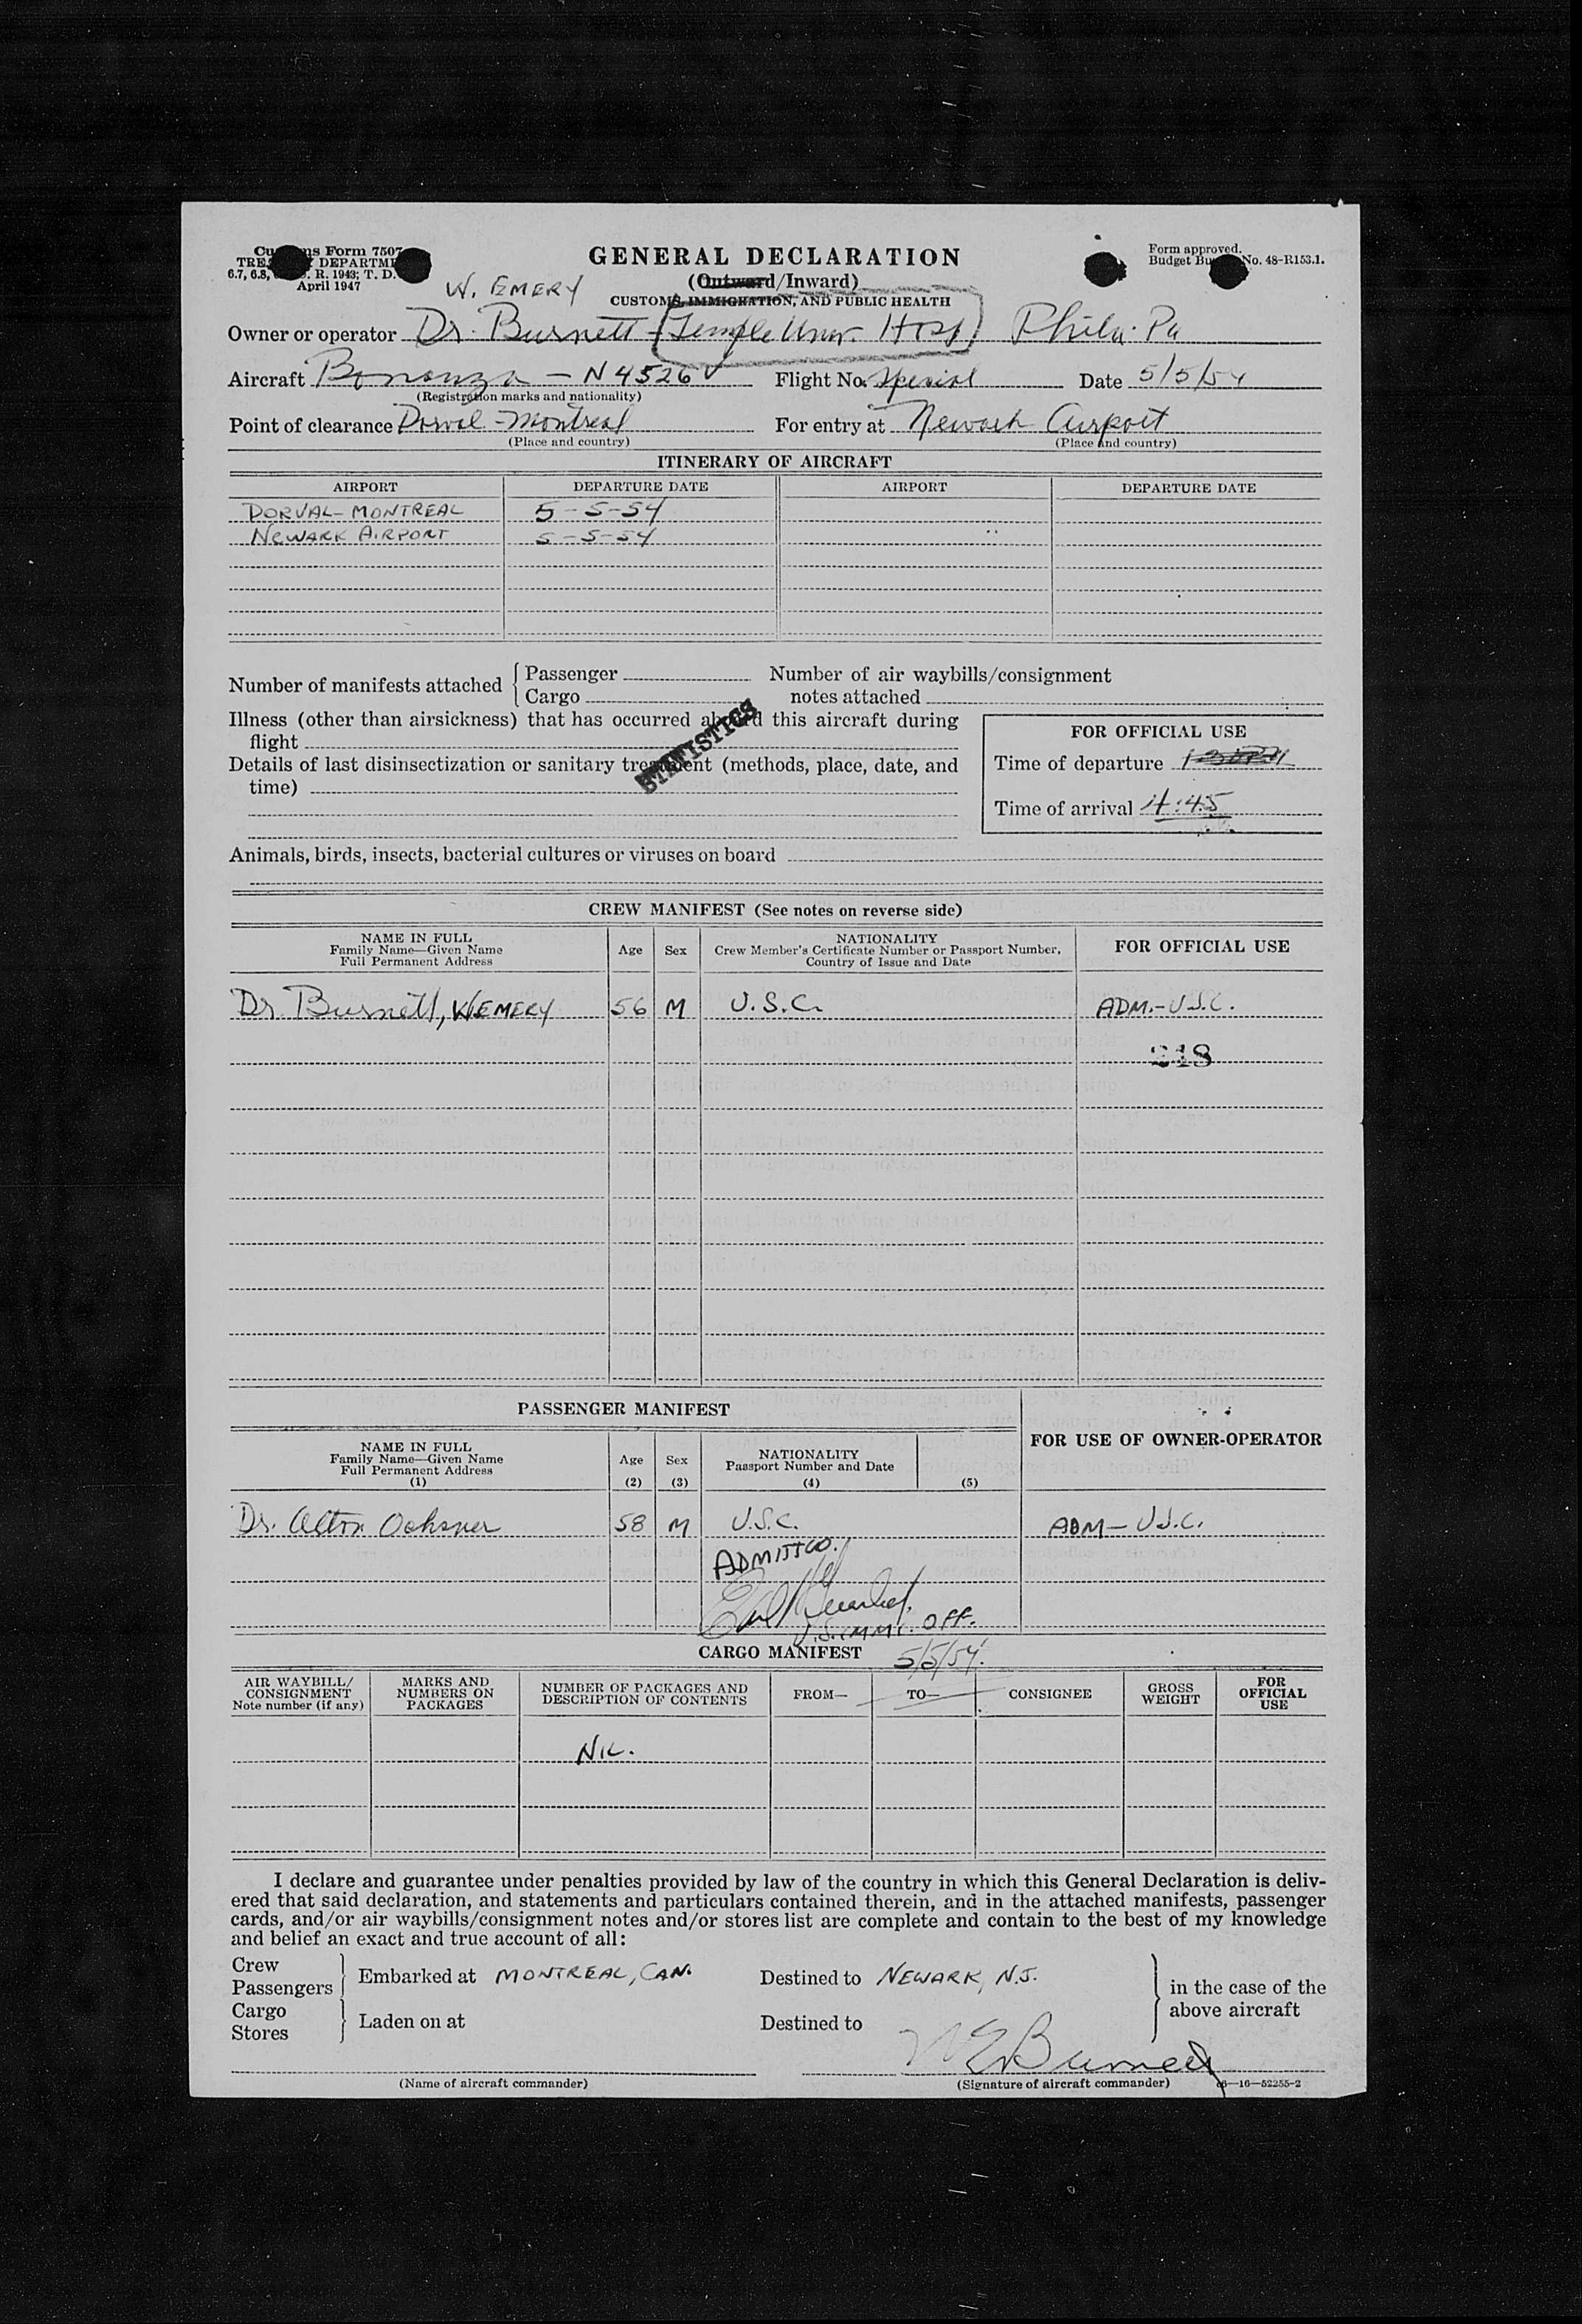 Customs Form 7507
TREASURY DEPARTMENT
6.7, 6.8, C. R. 1943; T. D.
April 1947
GENERAL DECLARATION
(Outward/Inward)
CUSTOMS, IMMIGRATION, AND PUBLIC HEALTH
Form approved.
Budget Bureau No. 48-R153.1.
W. EMERY
Owner or operator Dr. Burnett - Temple Univ. Hosp Phila. Pa
Aircraft Bonanza - N4526V Flight No. Special Date 5/5/54
(Registration marks and nationality)
Point of clearance Dorval - Montreal For entry at Newark Airport
(Place and country) (Place and country)
ITINERARY OF AIRCRAFT
AIRPORT DEPARTURE DATE AIRPORT DEPARTURE DATE
DORVAL-MONTREAL 5-5-54
NEWARK AIRPORT 5-5-54
Number of manifests attached { Passenger
Cargo
Number of air waybills/consignment
notes attached
Illness (other than airsickness) that has occurred aboard this aircraft during
flight
Details of last disinsectization or sanitary treatment (methods, place, date, and
time)
STATISTICS
FOR OFFICIAL USE
Time of departure
Time of arrival 4:45
Animals, birds, insects, bacterial cultures or viruses on board
CREW MANIFEST (See notes on reverse side)
NAME IN FULL
Family Name—Given Name
Full Permanent Address
Age
Sex
NATIONALITY
Crew Member's Certificate Number or Passport Number,
Country of Issue and Date
FOR OFFICIAL USE
Dr. Burnett, W. EMERY 56 M U.S.C. ADM.-U.S.C.
218
PASSENGER MANIFEST
FOR USE OF OWNER-OPERATOR
NAME IN FULL
Family Name—Given Name
Full Permanent Address
(1)
Age
(2)
Sex
(3)
NATIONALITY
Passport Number and Date
(4)
(5)
Dr. Alton Ochsner 58 M U.S.C. ADM-U.S.C.
ADMITTED.
U.S. IMMI. OFF.
5/5/54.
CARGO MANIFEST
AIR WAYBILL/
CONSIGNMENT
Note number (if any)
MARKS AND
NUMBERS ON
PACKAGES
NUMBER OF PACKAGES AND
DESCRIPTION OF CONTENTS
FROM—
TO—
CONSIGNEE
GROSS
WEIGHT
FOR
OFFICIAL
USE
NIL.
I declare and guarantee under penalties provided by law of the country in which this General Declaration is deliv-
ered that said declaration, and statements and particulars contained therein, and in the attached manifests, passenger
cards, and/or air waybills/consignment notes and/or stores list are complete and contain to the best of my knowledge
and belief an exact and true account of all:
Crew
Passengers } Embarked at MONTREAL, CAN. Destined to NEWARK, N.J.
Cargo
Stores } Laden on at Destined to
} in the case of the
above aircraft
W E Burnett
(Name of aircraft commander) (Signature of aircraft commander) 16—52255-2